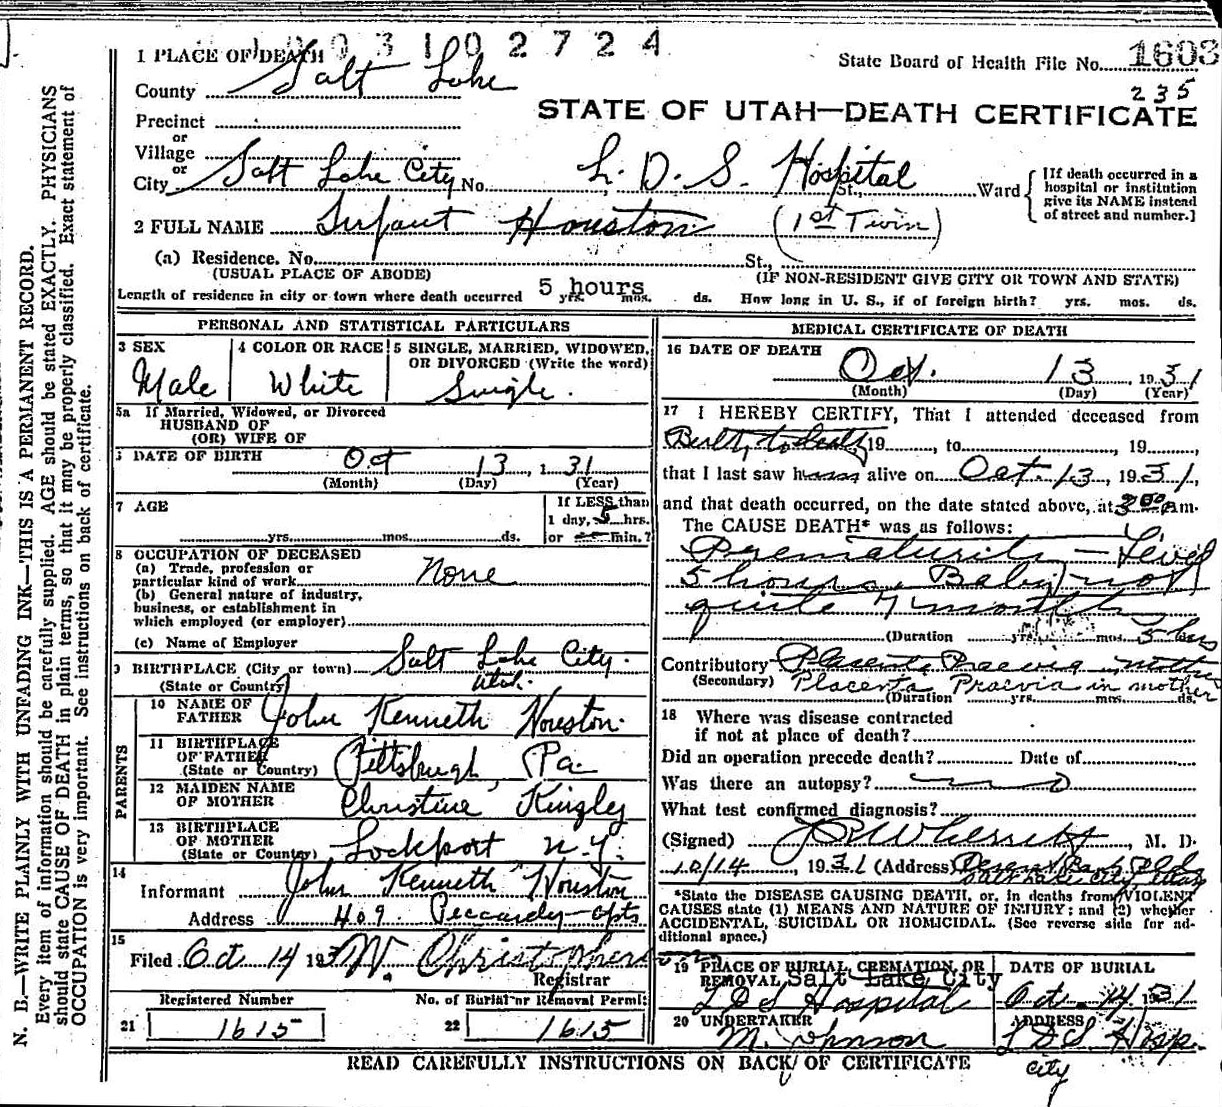 1 0 3 1 0 2 7 2 4
1 PLACE OF DEATH
State Board of Health File No. 1603
235
County Salt Lake
STATE OF UTAH—DEATH CERTIFICATE
Precinct
or
Village
or
City Salt Lake City No. L. D. S. Hospital St., Ward
[If death occurred in a
hospital or institution
give its NAME instead
of street and number.]
2 FULL NAME Infant Houston (1st Twin)
(a) Residence. No. St.,
(USUAL PLACE OF ABODE) (IF NON-RESIDENT GIVE CITY OR TOWN AND STATE)
Length of residence in city or town where death occurred 5 hours yrs. mos. ds. How long in U. S., if of foreign birth? yrs. mos. ds.
PERSONAL AND STATISTICAL PARTICULARS
3 SEX Male
4 COLOR OR RACE White
5 SINGLE, MARRIED, WIDOWED,
OR DIVORCED (Write the word)
Single.
5a If Married, Widowed, or Divorced
HUSBAND OF
(OR) WIFE OF
DATE OF BIRTH Oct 13, 1 31
(Month) (Day) (Year)
7 AGE
yrs. mos. ds.
If LESS than
1 day, 5 hrs.
or min.?
8 OCCUPATION OF DECEASED
(a) Trade, profession or
particular kind of work None
(b) General nature of industry,
business, or establishment in
which employed (or employer)
(c) Name of Employer
9 BIRTHPLACE (City or town) Salt Lake City.
(State or Country) Utah.
PARENTS
10 NAME OF
FATHER John Kenneth Houston.
11 BIRTHPLACE
OF FATHER
(State or Country) Pittsburgh, Pa.
12 MAIDEN NAME
OF MOTHER Christine Kingley
13 BIRTHPLACE
OF MOTHER
(State or Country) Lockport N.Y.
14
Informant John Kenneth Houston
Address 409 Peccardy-Apts
15
Filed Oct 14 193 W. Christopherson
Registrar
Registered Number
21 1615
No. of Burial or Removal Permit
22 1615
MEDICAL CERTIFICATE OF DEATH
16 DATE OF DEATH
Oct. 13, 1931
(Month) (Day) (Year)
17 I HEREBY CERTIFY, That I attended deceased from
Birth to death 19, to 19
that I last saw him alive on Oct. 13, 1931,
and that death occurred, on the date stated above, at m.
The CAUSE DEATH* was as follows:
Prematurity — Lived
5 hours. Baby not
quite 7 months
(Duration yrs. mos. 5 hrs
Contributory Placenta Praevia in mother
(Secondary) Placenta Praevia in mother
(Duration yrs. mos. ds.
18 Where was disease contracted
if not at place of death?
Did an operation precede death? Date of
Was there an autopsy? no
What test confirmed diagnosis?
(Signed) J R Wherritt, M. D.
10/14 1931 (Address) Deseret Bank Bldg
Salt Lake City Utah
*State the DISEASE CAUSING DEATH, or, in deaths from VIOLENT
CAUSES state (1) MEANS AND NATURE OF INJURY; and (2) whether
ACCIDENTAL, SUICIDAL OR HOMICIDAL. (See reverse side for ad-
ditional space.)
19 PLACE OF BURIAL, CREMATION, OR
REMOVAL Salt Lake City
LDS Hospital
DATE OF BURIAL
Oct. 14 1931
20 UNDERTAKER
M. Johnson
ADDRESS
LDS Hosp.
city
READ CAREFULLY INSTRUCTIONS ON BACK OF CERTIFICATE
N. B.—WRITE PLAINLY WITH UNFADING INK—THIS IS A PERMANENT RECORD.
Every item of information should be carefully supplied. AGE should be stated EXACTLY. PHYSICIANS
should state CAUSE OF DEATH in plain terms, so that it may be properly classified. Exact statement of
OCCUPATION is very important. See instructions on back of certificate.